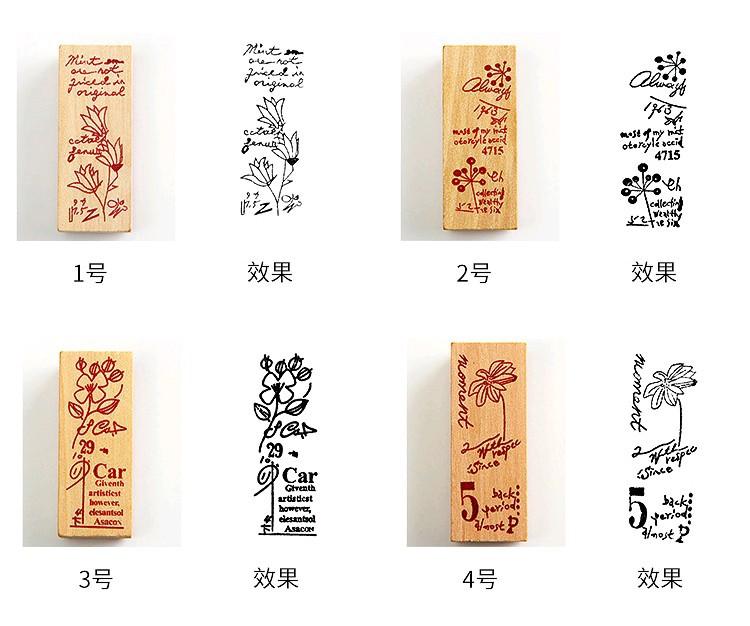 Mint en
are not
juiced in
original
catal
genus
Mint en
are not
juiced in
original
catal
genus
Always
1963
most of my mat
otorcyle occid
4715
eh
collecting
wealth
Always
1963
most of my mat
otorcyle occid
4715
eh
collecting
wealth
1号
效果
2号
效果
29
Car
Giventh
artistiest
however,
elesantsol
Asacon
29
Car
Giventh
artistiest
however,
elesantsol
Asacon
moment
2 With respec
Since
5
back
period
almost P
moment
2 With respec
Since
5
back
period
almost P
3号
效果
4号
效果